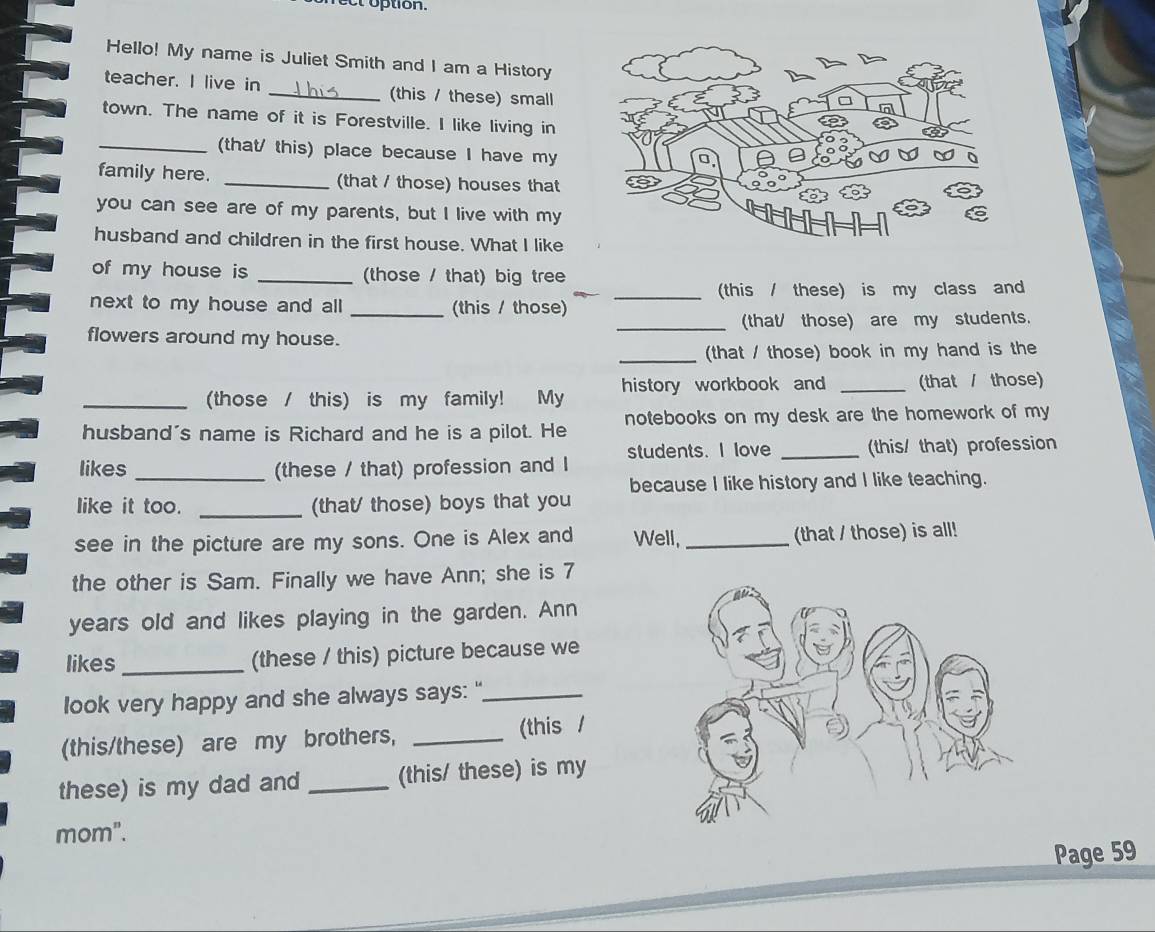 option.
Hello! My name is Juliet Smith and I am a History
teacher. I live in This (this / these) small
town. The name of it is Forestville. I like living in
________ (that/ this) place because I have my
family here. ________ (that / those) houses that
you can see are of my parents, but I live with my
husband and children in the first house. What I like
of my house is ________ (those / that) big tree
next to my house and all ________ (this / those)
flowers around my house.
________ (those / this) is my family! My
husband´s name is Richard and he is a pilot. He
likes ________ (these / that) profession and I
like it too. ________ (that/ those) boys that you
see in the picture are my sons. One is Alex and
the other is Sam. Finally we have Ann; she is 7
years old and likes playing in the garden. Ann
likes ________ (these / this) picture because we
look very happy and she always says: “________
(this/these) are my brothers, ________ (this /
these) is my dad and ________ (this/ these) is my
mom”.
________ (this / these) is my class and
________ (that/ those) are my students.
________ (that / those) book in my hand is the
history workbook and ________ (that / those)
notebooks on my desk are the homework of my
students. I love ________ (this/ that) profession
because I like history and I like teaching.
Well, ________ (that / those) is all!
Page 59